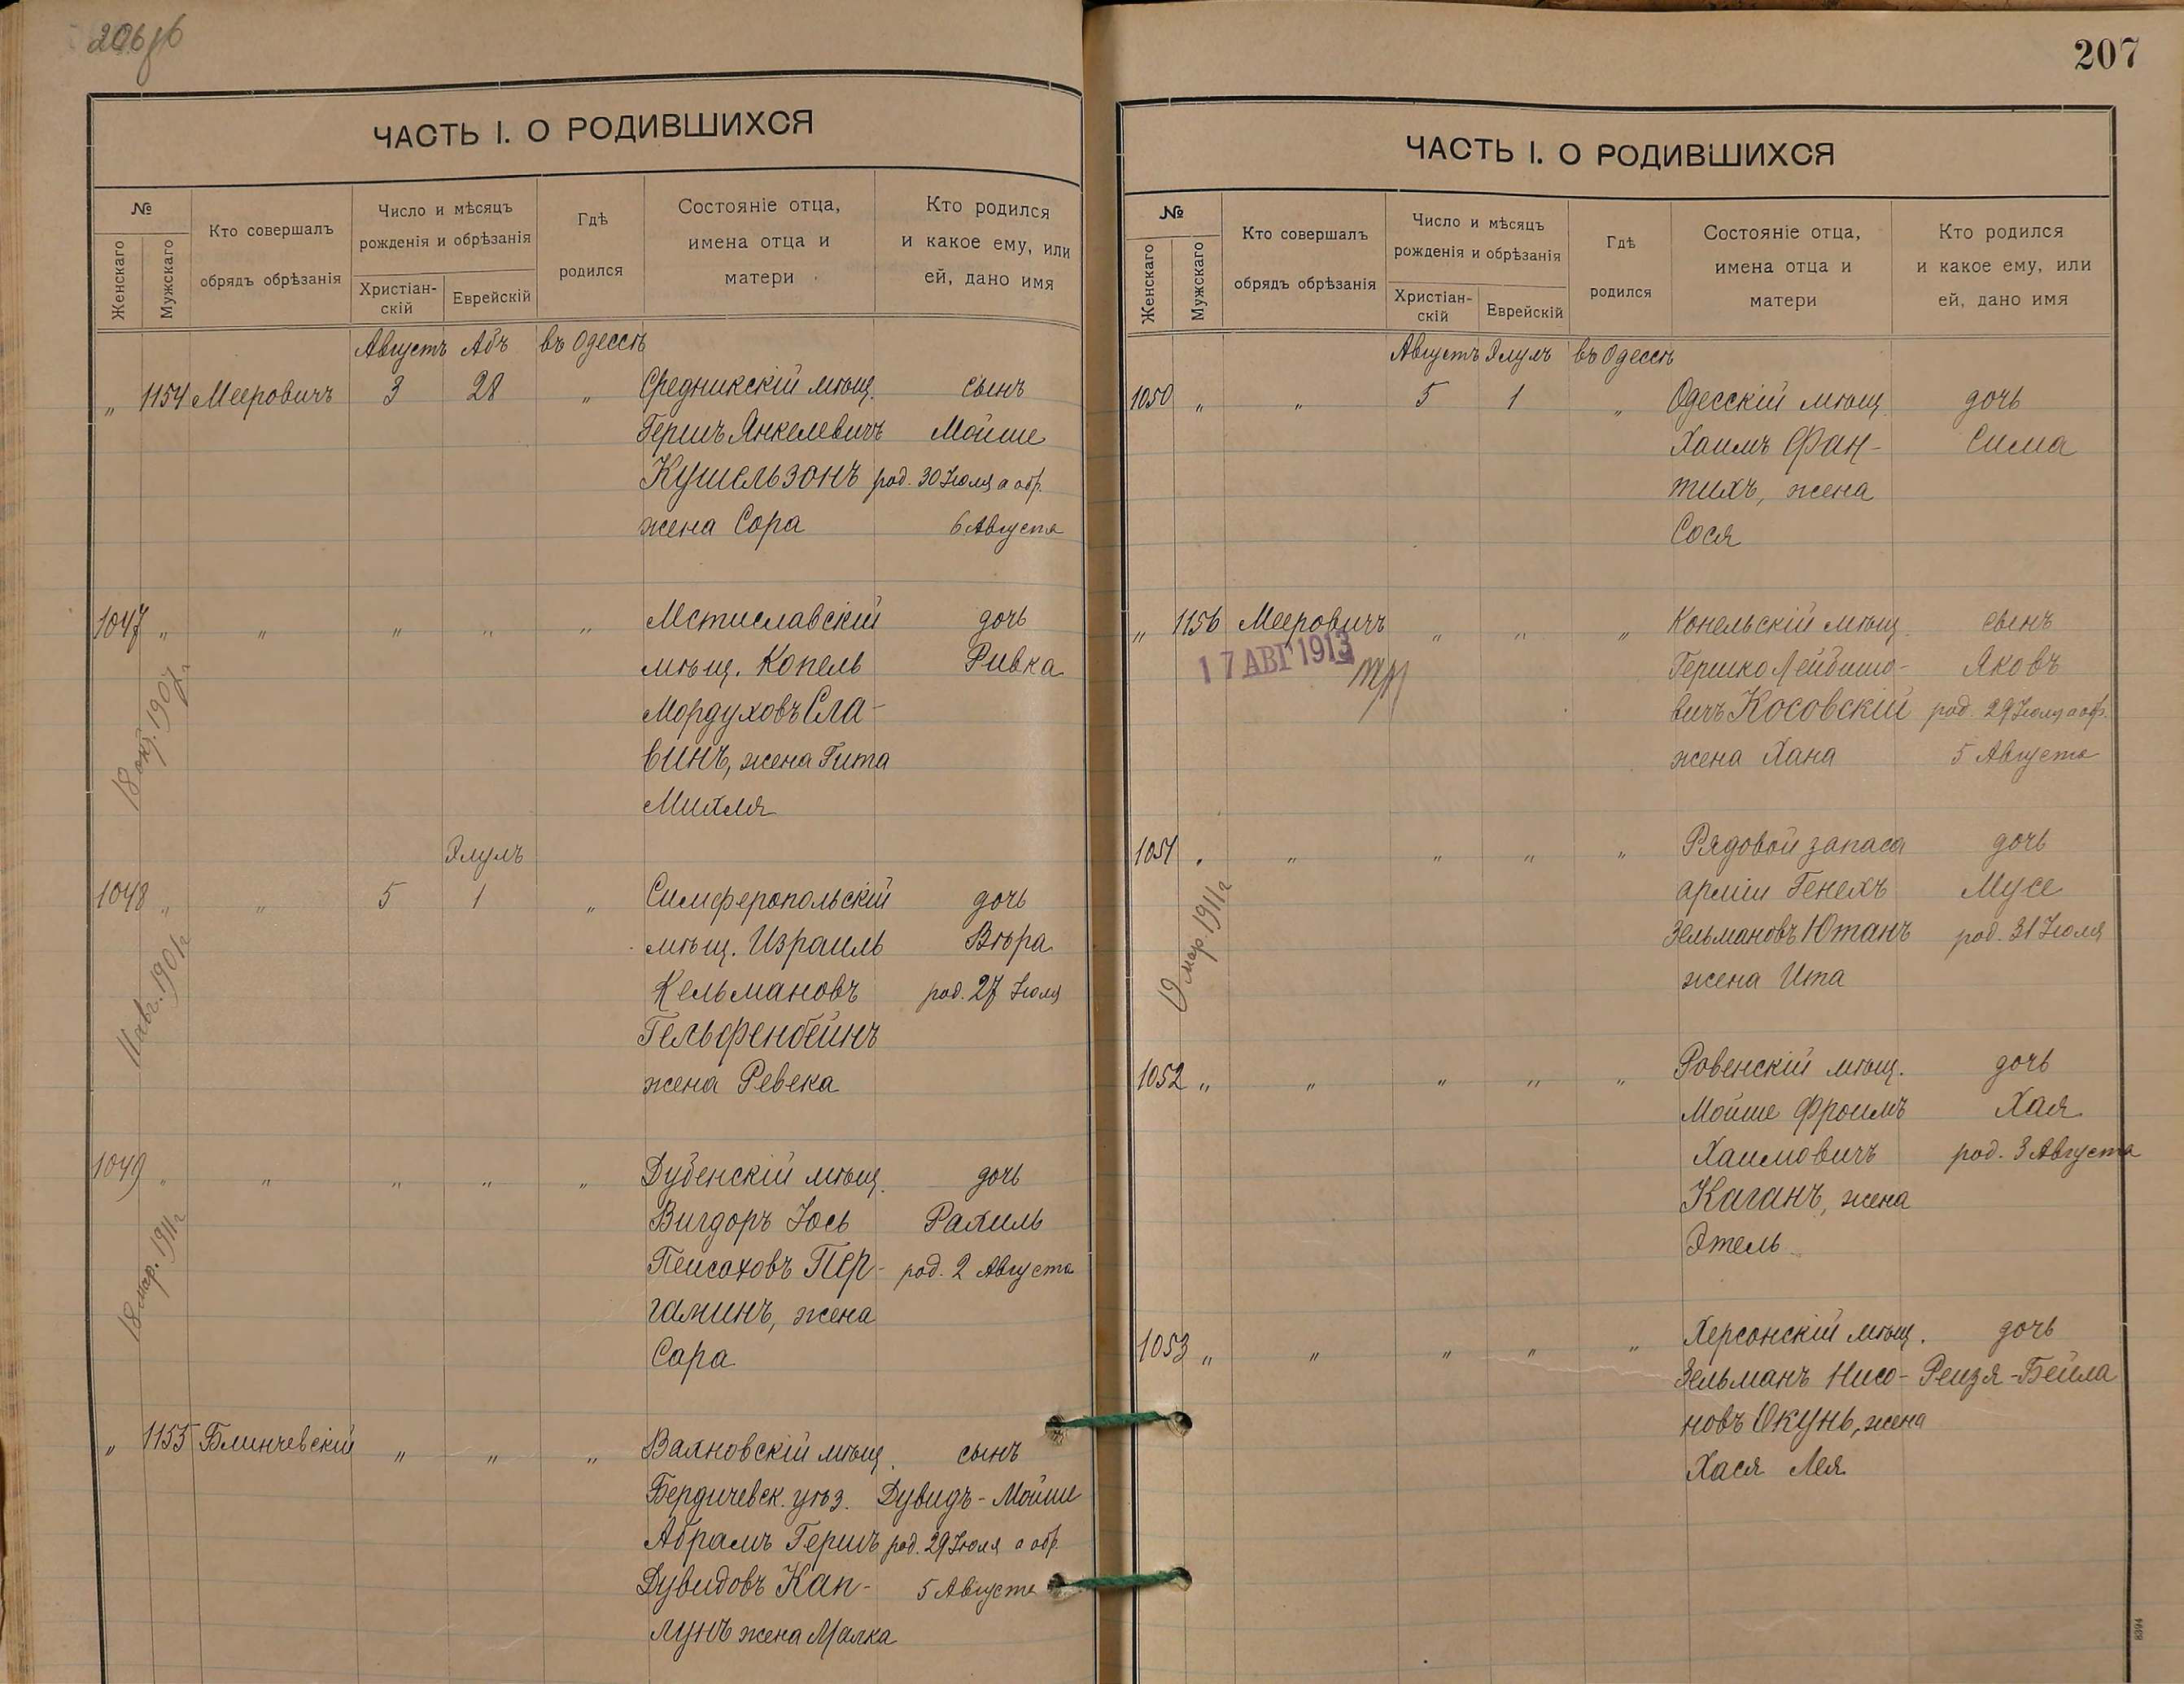 206 об
ЧАСТЬ I. О РОДИВШИХСЯ
№
Женскаго
Мужскаго
Кто совершалъ
обрядъ обрѣзанія
Число и мѣсяцъ
рожденія и обрѣзанія
Христіан-
скій
Еврейскій
Гдѣ
родился
Состояніе отца,
имена отца и
матери
Кто родился
и какое ему, или
ей, дано имя
Августъ Абъ въ Одессѣ
„ 1154 Мееровичъ 3 28 „ Средникскій мѣщ. сынъ
Гершъ Янкелевичъ Мойше
Кушельзонъ род. 30 Іюля а обр.
жена Сора 6 Августа
1047 „ „ „ „ „ Мстиславскій дочь
мѣщ. Копель Ривка
Мордуховъ Сла-
винъ, жена Гита
Михля
18 окт. 1907 г.
Элулъ
1048 „ „ 5 1 „ Симферопольскій дочь
мѣщ. Израиль Вѣра
Кельмановъ род. 27 Іюля
Гельфенбейнъ
жена Ревека
11 авг. 1901 г
1049 „ „ „ „ „ Дубенскій мѣщ. дочь
Вигдоръ Іось Рахиль
Пейсаховъ Пер- род. 2 Августа
гаминъ, жена
Сара
18 мар. 1911 г
„ 1155 Блинчевскій „ „ „ Вахновскій мѣщ. сынъ
Бердичевск. уѣз. Дувидъ-Мойше
Абрамъ Гершъ род. 29 Іюля а обр.
Дувидовъ Кап- 5 Августа
лунъ жена Малка
207
ЧАСТЬ I. О РОДИВШИХСЯ
№
Женскаго
Мужскаго
Кто совершалъ
обрядъ обрѣзанія
Число и мѣсяцъ
рожденія и обрѣзанія
Христіан-
скій
Еврейскій
Гдѣ
родился
Состояніе отца,
имена отца и
матери
Кто родился
и какое ему, или
ей, дано имя
Августъ Элулъ въ Одессѣ
1050 „ „ 5 1 „ Одесскій мѣщ. дочь
Хаимъ Фан- Сима
тихъ, жена
Сося
„ 1156 Мееровичъ „ „ „ Конельскій мѣщ. сынъ
17 АВГ 1913
Гершко Лейбишо- Яковъ
вичъ Косовскій род. 29 Іюля а обр.
жена Хана 5 Августа
1051 „ „ „ „ „ Рядовой запаса дочь
арміи Генехъ Мусе
Зельмановъ Ютанъ род. 31 Іюля
жена Ита
19 мар. 1911 г
1052 „ „ „ „ „ Ровенскій мѣщ. дочь
Мойше Фроимъ Хая
Хаимовичъ род. 3 Августа
Каганъ, жена
Этель
1053 „ „ „ „ „ Херсонскій мѣщ. дочь
Зельманъ Нисо- Рейзя-Бейла
новъ Окунь, жена
Хася Лея
8394